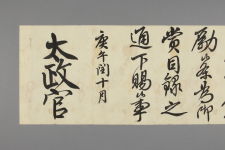 勤労為御
賞目録之
通下賜候事
庚午閏十月
太政官